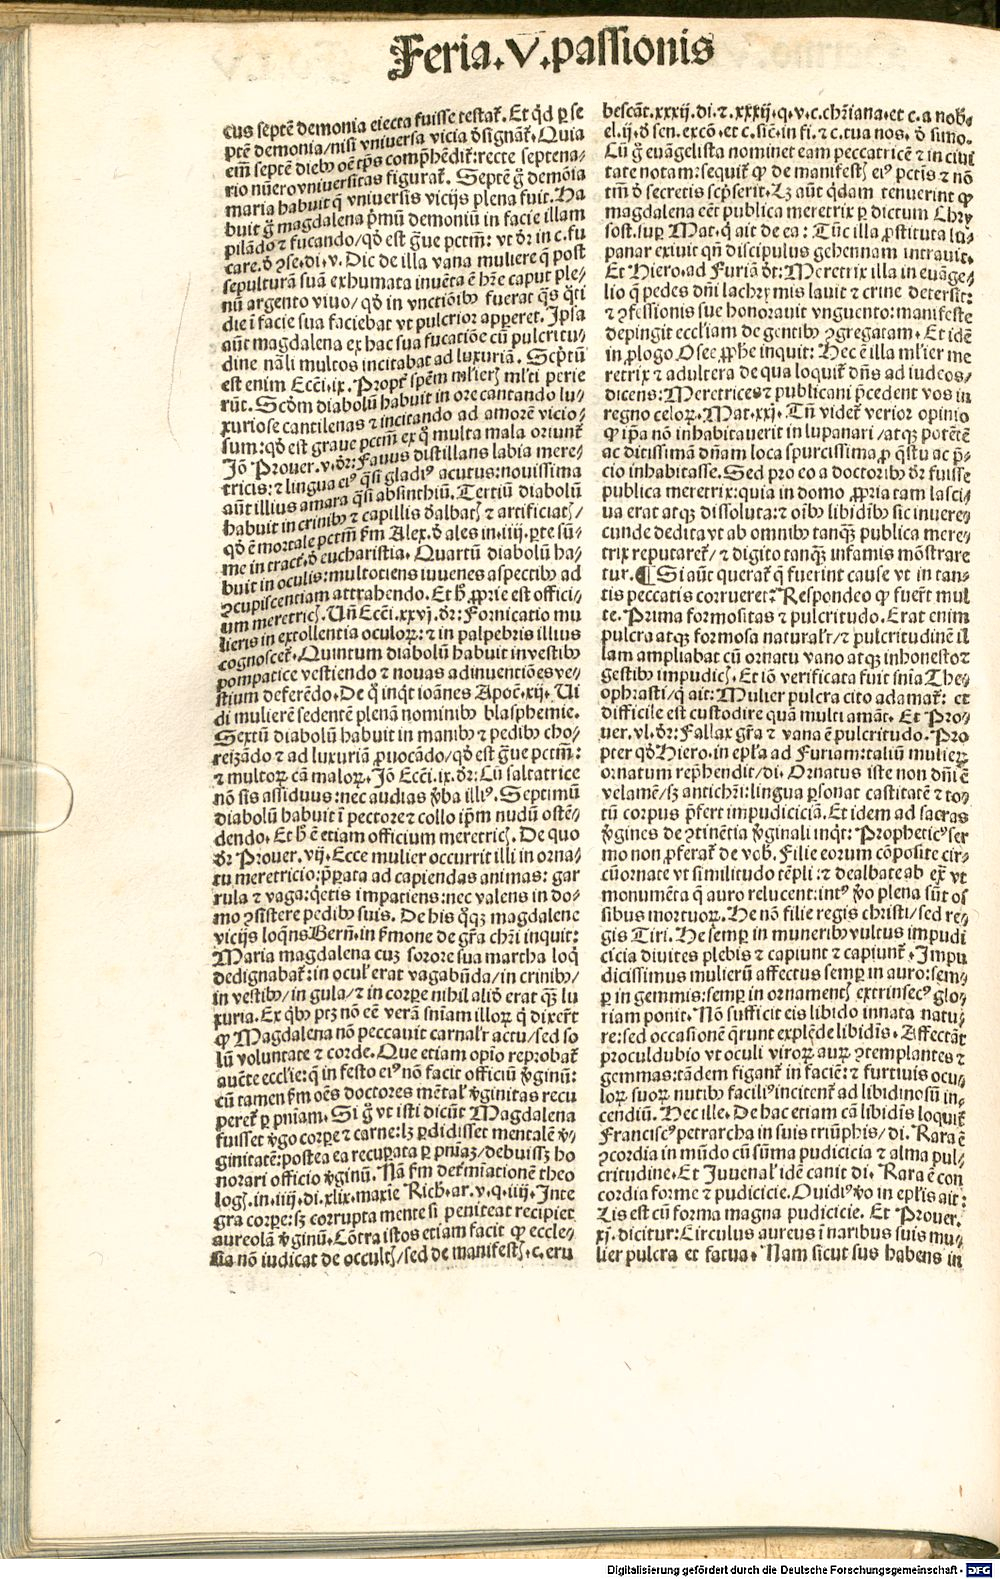 Feria.V.passionis
cus septē demonia eiecta fuisse testat᷑. Et q̇d ꝑ se
ptē demonia/nisi vniuersa vicia ꝺ̄signāt᷑. Quia
em̄ septē dieb⁹ oē tp̄s comp̄hēdit᷑: recte septena⸗
rio nūero vniuersitas figurat᷑. Septē g̊ demōia
maria habuit q̄ vniuersis vicijs plena fuit. Ha
buit g̊ magdalena p̄mū demoniū in facie illam
pilādo ⁊ fucando/qd̓ est g̊ue pctm̄: vt ꝺ̄r in c. fu
care. ꝺ̄ ꝯse. di. v. Dic de illa vana muliere q̄ post
sepulturā suā exhumata inuēta ē hr̄e caput ple⸗
nū argento viuo/qd̓ in vnctiōib⁹ fuerat q̄s q̊ti
die ī facie sua faciebat vt pulcrior apperet. Ipsa
aūt magdalena ex hac sua fucatiōe cū pulcritu⸗
dine nāli multos incitabat ad luxuriā. Scptū
est enim Ecci. ix. Propt᷑ spēm ml̓ierꝭ ml̓ti perie
rūt. Scd̓m diabolū habuit in ore cantando lu⸗
xuriose cantilenas ⁊ incitando ad amorē vicio⸗
sum: qd̓ est graue pctm̄ ex q̊ multa mala oriunt᷑
Iō Prouer. v. ꝺ̄r: Fauus distillans labia mere⸗
tricis: ⁊ lingua ei⁹ q̄si gladi⁹ acutus: nouissima
aūt illius amara q̄si absinthiū. Tertiū diabolū
habuit in crinib⁹ ⁊ capillis ꝺ̄albatꝭ ⁊ artificiatꝭ/
qd̓ ē mortale pctm̄ ẜm Alex. ꝺ̄ ales in. iiij. ꝑte sū⸗
me in tract᷑. ꝺ̄ eucharistia. Quartū diabolū ha⸗
buit in oculis: multotiens iuuenes aspectib⁹ ad
ꝯcupiscentiam attrahendo. Et h̓ ꝓprie est offici⸗
um meretricꝭ. Uñ Ecci. xxvj. ꝺ̄r: Fornicatio mu
lieris in extollentia oculoꝝ: ⁊ in palpebris illius
cognoscet᷑. Quintum diabolū habuit in vestib⁹
pompatice vestiendo ⁊ nouas adinuentiōes ve⸗
stium deferēdo. De q̊ inq̇t ioānes Apoc̄. xij. Ui
di mulierē sedentē plenā nominib⁹ blasphemie.
Sextū diabolū habuit in manib⁹ ⁊ pedib⁹ cho⸗
reizādo ⁊ ad luxuriā ꝓuocādo/qd̓ est g̊ue pctm̄:
⁊ multoꝝ cā maloꝝ. Iō Ecci. ix. ꝺ̄r: Cū saltatrice
nō sis assiduus: nec audias v̓ba illi⁹. Septimū
diabolū habuit ī pectore ⁊ collo ip̄m nudū ostē⸗
dendo. Et h̓ ē etiam officium meretricꝭ. De quo
ꝺ̄r Prouer. vij. Ecce mulier occurrit illi in orna⸗
tu meretricio: p̄parata ad capiendas animas: gar
rula ⁊ vaga: q̇etis impatiens: nec valens in do⸗
mo ꝯsistere pedib⁹ suis. De his q̊qꝫ magdalene
vicijs loq̄ns Bern̄. in ẜmone de gr̄a chr̄i inquit:
Maria magdalena cuꝫ sorore sua martha loq̇
dedignabat᷑: in ocul̓ erat vagabūda/in crinib⁹/
in vestib⁹/in gula/⁊ in corꝑe nihil aliđ erat q̄ꝫ lu
xuria. Ex q̇b⁹ ptꝫ nō eē verā sn̄iam illoꝝ q̇ dixer̄t
ꝙ Magdalena nō peccauit carnal̓r actu/sed so
lū voluntate ⁊ corde. Que etiam opīo reprobat᷑
auc̄te eccl̓ie: q̄ in festo ei⁹ nō facit officiū v̓ginū:
cū tamen ẜm oēs doctores mētal̓ v̓ginitas recu
peret᷑ ꝑ pn̄iam. Si g̊ vt isti dicūt Magdalena
fuisset v̓go corꝑe ⁊ carne: lꝫ ꝑdidisset mentalē v̓⸗
ginitatē: postea ea recuꝑata ꝑ pn̄iaꝫ/debuissꝫ ho
norari officio v̓ginū. Nā ẜm det᷑miationē theo
logꝭ. in. iiij. di. xlix. maxīe Rich̓. ar. v. q. iiij. Inte
gra corꝑe: sꝫ corrupta mente si peniteat recipiet
aureolā v̓ginū. Cōtra istos etiam facit ꝙ eccle⸗
sia nō iudicat de occultꝭ/sed de manifestꝭ. c. eru
bescāt. xxxij. di. ⁊. xxxij. q. v. c. chr̄iana. et c. a nob̓.
el. ij. ꝺ̄ sen. excō. et c. sic̄. in fi. ⁊ c. tua nos. ꝺ̄ simo.
Cū g̊ euāgelista nominet eam peccatricē ⁊ in ciui
tate notam: sequit᷑ ꝙ de manifestꝭ ei⁹ pctis ⁊ nō
tm̄ ꝺ̄ secretis scp̄serit. Lꝫ aūt q̇dam tenuerint ꝙ
magdalena eēt publica meretrix ꝑ dictum Chry
sost. suꝑ Mat. q̇ ait de ea: Tūc illa ꝓstituta lu⸗
panar exiuit qn̄ discipulus gehennam intrauit.
Et Hiero. ad Furiā ꝺ̄t: Meretrix illa in euāge⸗
lio q̄ pedes dn̄i lachrymis lauit ⁊ crine detersit:
⁊ ꝯfessionis sue honorauit vnguento: manifeste
depingit eccl̓iam de gentib⁹ ꝯgregatam. Et idē
in ꝓlogo Osee ꝓph̓e inquit: Hec ē illa ml̓ier me
retrix ⁊ adultera de qua loquit᷑ dn̄s ad iudeos/
dicens: Meretrices ⁊ publicani p̄cedent vos in
regno celoꝝ. Mat. xxj. Tn̄ videt᷑ verior opinio
ꝙ ip̄a nō inhabitauerit in lupanari/atqꝫ potētē
ac ditissimā dn̄am loca spurcissima ꝓ q̄stu ac p̄⸗
cio inhabitasse. Sed pro eo a doctorib⁹ ꝺ̄r fuisse
publica meretrix: quia in domo ꝓpria tam lasci⸗
ua erat atqꝫ dissoluta: ⁊ oīb⁹ libidīb⁹ sic inuere⸗
cunde dedita vt ab omnib⁹ tanq̄ꝫ publica mere⸗
trix reputaret᷑/⁊ digito tanq̄ꝫ infamis mōstrare
tur. ¶ Si aūt querat᷑ q̄ fuerint cause vt in tan⸗
tis peccatis corrueret? Respondeo ꝙ fuer̄t mul
te. Prima formositas ⁊ pulcritudo. Erat enim
pulcra atqꝫ formosa natural̓r/⁊ pulcritudinē il
lam ampliabat cū ornatu vano atqꝫ inhonesto ⁊
gestib⁹ impudicꝭ. Et iō verificata fuit sn̄ia The
ophrasti/q̇ ait: Mulier pulcra cito adamat᷑: et
difficile est custodire quā multi amāt. Et Pro⸗
uer. vl. ꝺ̄r: Fallax gr̄a ⁊ vana ē pulcritudo. Pro
pter qd̓ Hiero. in epl̓a ad Furiam: taliū mulieꝝ
ornatum rep̄hendit/di. Ornatus iste non dn̄i ē
velamē/sꝫ antichr̄i: lingua ꝑsonat castitatē ⁊ to⸗
tū corpus p̄fert impudiciciā. Et idem ad sacras
v̓gines de ꝯtinētia v̓ginali inq̇t: Prophetic⁹ ser
mo non ꝓferat᷑ de vob̓. Filie eorum cōposite cir⸗
cūornate vt similitudo tēpli: ⁊ dealbate ab ex̄ vt
monumēta q̄ auro relucent: int⁹ v̓o plena sūt os
sibus mortuoꝝ. He nō filie regis christi/sed re⸗
gis Tiri. He semꝑ in munerib⁹ vultus impudi
cicia diuites plebis ⁊ capiunt ⁊ capiunt᷑. Impu
dicissimus mulierū affectus semꝑ in auro: sem⸗
ꝑ in gemmis: semꝑ in ornamentꝭ extrinsec⁹ glo⸗
riam ponit. Nō sufficit eis libido innata natu⸗
re: sed occasionē q̄runt explēde libidīs. Affectāt
proculdubio vt oculi viroꝝ auꝝ ꝯtemplantes ⁊
gemmas: tādem figant᷑ in faciē: ⁊ furtiuis ocu⸗
loꝝ suoꝝ nutib⁹ facili⁹ incitent᷑ ad libidinosū in⸗
cendiū. Hec ille. De hac etiam cā libidīs loquit᷑
Francisc⁹ petrarcha in suis triūphis/di. Rara ē
ꝯcordia in mūdo cū sūma pudicicia ⁊ alma pul⸗
critudine. Et Juuenal̓ idē canit di. Rara ē con
cordia forme ⁊ pudicicie. Ouidi⁹ v̓o in epl̓is ait:
Lis est cū forma magna pudicicie. Et Prouer.
xj. dicitur: Circulus aureus ī naribus suis mu⸗
lier pulcra et fatua. Nam sicut sus habens in
Digitalisierung gefördert durch die Deutsche Forschungsgemeinschaft - DFG